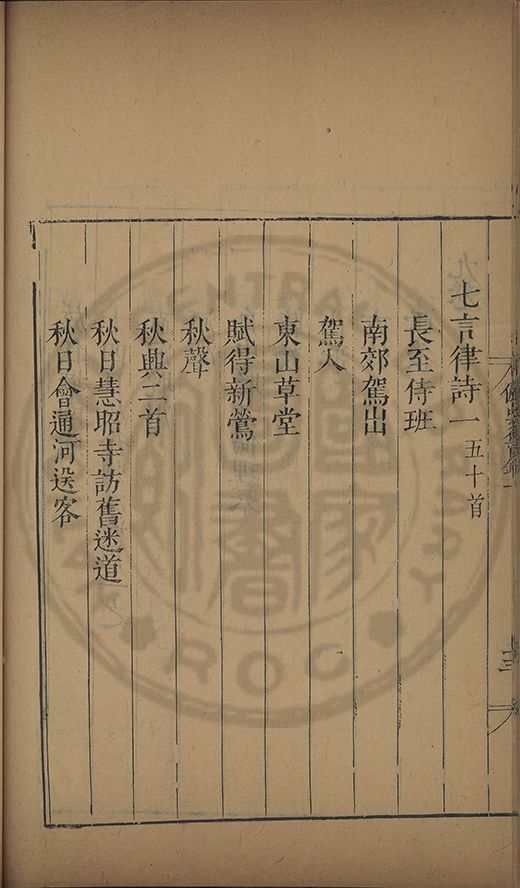 七言律詩一五十首
長至侍班
南郊駕出
駕入
東山草堂
賦得新鶯
秋聲
秋興三首
秋日慧昭寺訪舊迷道
秋日會通河送客